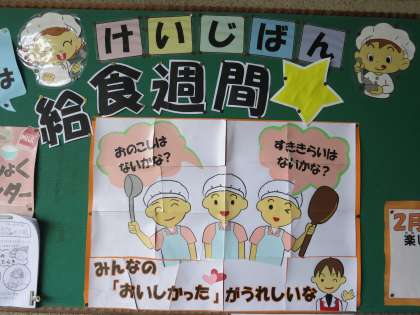 けいじばん
は
給食週間
おのこしは
ないかな？
すききらいは
ないかな？
みんなの
「おいしかった」がうれしいな
2月
楽し